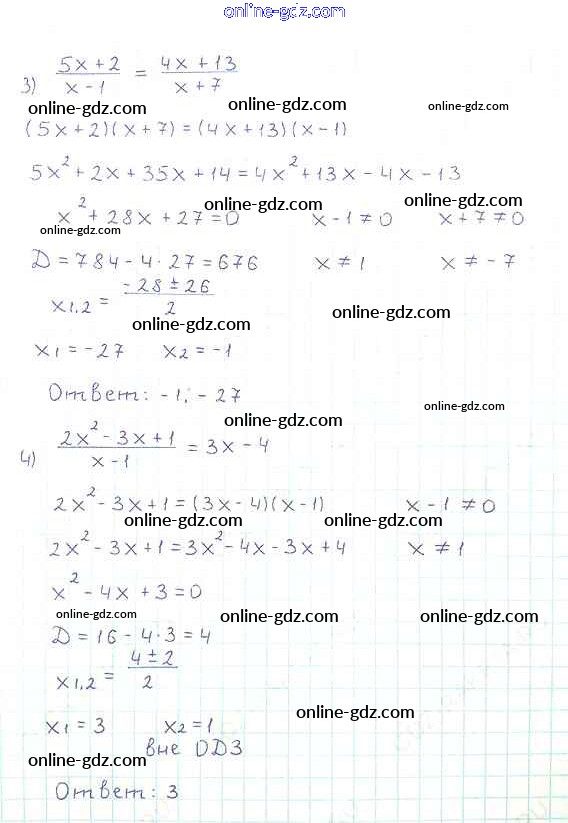 online-gdz.com
3) (5x+2)/(x-1) = (4x+13)/(x+7)
online-gdz.com online-gdz.com online-gdz.com
(5x+2)(x+7)=(4x+13)(x-1)
5x²+2x+35x+14=4x²+13x-4x-13
online-gdz.com online-gdz.com
x²+28x+27=0 x-1≠0 x+7≠0
online-gdz.com
D=784-4·27=676 x≠1 x≠-7
x1,2 = (-28±26)/2
online-gdz.com online-gdz.com
x1=-27 x2=-1
Ответ: -1; -27
online-gdz.com online-gdz.com
4) (2x²-3x+1)/(x-1) = 3x-4
online-gdz.com
2x²-3x+1=(3x-4)(x-1) x-1≠0
online-gdz.com online-gdz.com
2x²-3x+1=3x²-4x-3x+4 x≠1
x²-4x+3=0
online-gdz.com online-gdz.com online-gdz.com
D=16-4·3=4
x1,2 = (4±2)/2
online-gdz.com
x1=3 x2=1
вне ОДЗ
online-gdz.com online-gdz.com
Ответ: 3